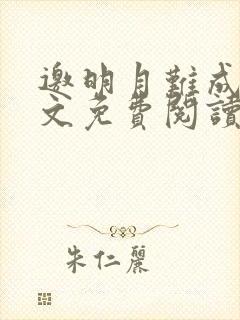 邀明月難成
文免費閱讀
朱仁麗